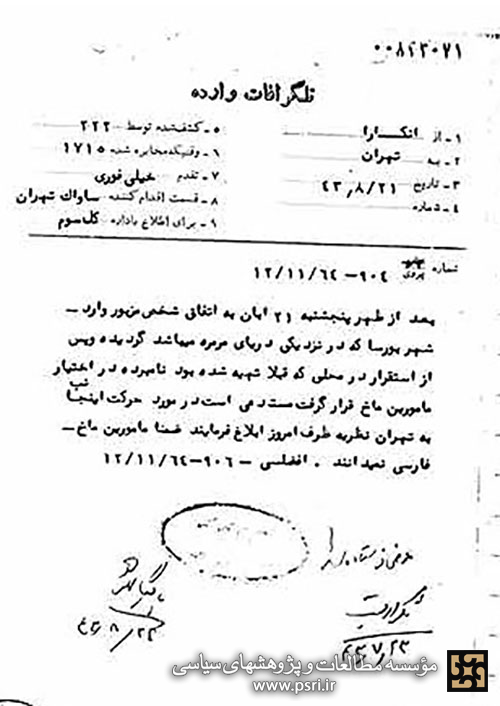 ۰۰۸۲۳۰۷۱
تلگرافات وارده
۱ـ از انکارا
۲ـ به تهران
۳ـ تاریخ ۴۳٫۸/۲۱
۴ـ شماره
۵ـ کشف‌شده توسط ۲۲۲
۶ـ وقتیکه مخابره شده ۱۷۱۵
۷ـ تقدم خیلی فوری
۸ـ قسمت اقدام کننده ساواک تهران
۹ـ برای اطلاع باداره کل سوم
شماره ۹۰۴ـ۱۲/۱۱/۶۴
بعد از ظهر پنجشنبه ۲۱ آبان به اتفاق شخص مزبور وارد ـ
شهر بورسا که در نزدیکی دریای مرمره میباشد گردیده و پس
از استقرار در محلی که قبلا تهیه شده بود نامبرده در اختیار
مامورین ماخ قرار گرفت مستدعی است در مورد حرکت اینجانب
به تهران نظریه ظرف امروز ابلاغ فرمایند ضمنا مامورین ماخ ـ
فارسی نمیدانند . افضلسی ـ ۹۰۶ـ۱۲/۱۱/۶۴
مؤسسه مطالعات و پژوهشهای سیاسی
www.psri.ir